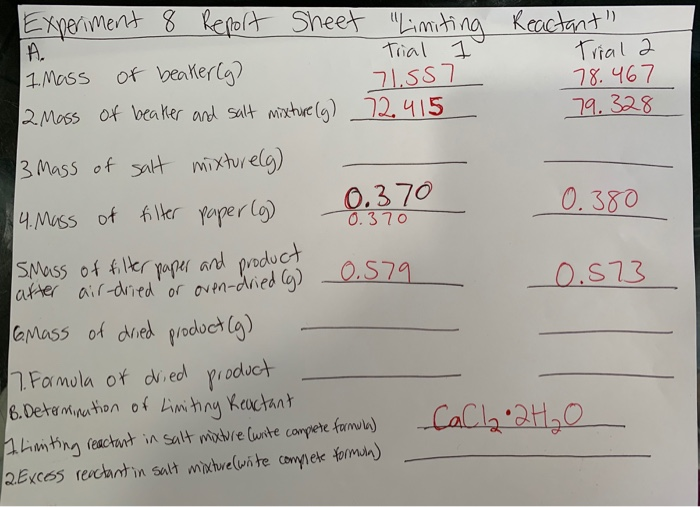 Experiment 8 Report Sheet "Limiting Reactant"
A. Trial 1 Trial 2
1. Mass of beaker(g) 71.557 78.467
2. Mass of beaker and salt mixture(g) 72.415 79.328
3 Mass of salt mixture(g)
4. Mass of filter paper (g) 0.370 0.380
0.370
5. Mass of filter paper and product
after air-dried or oven-dried (g) 0.579 0.573
6. Mass of dried product(g)
7. Formula of dried product
B. Determination of Limiting Reactant
1 Limiting reactant in salt mixture (write complete formula) CaCl₂•2H₂O
2. Excess reactant in salt mixture (write complete formula)